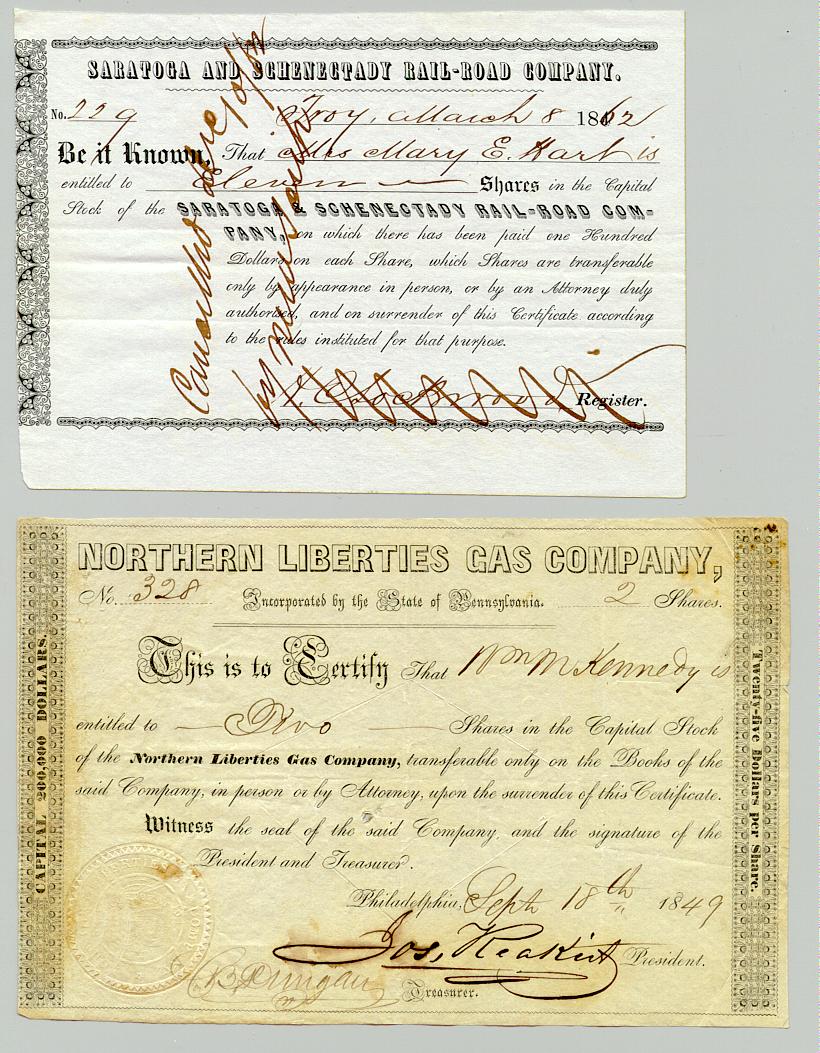 SARATOGA AND SCHENECTADY RAIL-ROAD COMPANY.
No. 229 Troy, March 8 1862
Be it Known, That Mrs Mary E. Hart is
entitled to Eleven Shares in the Capital
Stock of the SARATOGA & SCHENECTADY RAIL-ROAD COM-
PANY, on which there has been paid one Hundred
Dollars on each Share, which Shares are transferable
only by appearance in person, or by an Attorney duly
authorised, and on surrender of this Certificate according
to the rules instituted for that purpose.
Register.
Cancelled
NORTHERN LIBERTIES GAS COMPANY,
No. 328 Incorporated by the State of Pennsylvania. 2 Shares.
This is to Certify That Wm M Kennedy is
entitled to Two Shares in the Capital Stock
of the Northern Liberties Gas Company, transferable only on the Books of the
said Company, in person or by Attorney, upon the surrender of this Certificate.
Witness the seal of the said Company, and the signature of the
President and Treasurer.
Philadelphia, Sept 18th 1849
Jos, President.
B Dungan Treasurer.
CAPITAL 200,000 DOLLARS.
Twenty-five Dollars per Share.